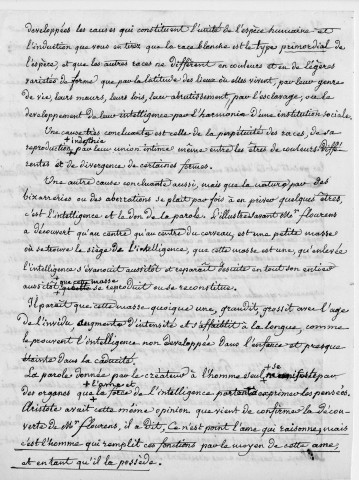 développées les causes qui constituent l'unité de l'espèce humaine et
l'induction que vous en tirez que la race blanche est le type primordial de
l'espèce, et que les autres races ne diffèrent en couleurs et en de légères
variétés de forme que par la latitude des lieux où elles vivent, par leur genre
de vie, leurs mœurs, leurs lois, leur abrutissement par l'esclavage, ou le
developpement de leur intelligence par l'harmonie d'une institution sociale.
Une cause très concluante est celle de la perpétuité des races, de sa
reproduction par leur union intime même entre les êtres de couleurs diffé
rentes et de divergence de certaines formes.
Une autre cause concluante aussi, mais que la nature par des
bizarreries ou des aberrations se plait par fois à en priver quelques êtres,
c'est l'intelligence et le don de la parole. L'illustre savant Mr. flourens
a découvert qu'au centre du cerveau, est une petite masse
où se trouve le siège de l'intelligence, que cette masse est une, qu'enlevée
l'intelligence s'évanouit aussitôt et reparaît ensuite en tout son entier
aussitôt que cette masse se reproduit ou se reconstitue.
Il paraît que cette masse quoique une, grandit, grossit avec l'age
de l'individu augmente d'intensité et s'affaiblit à la longue, comme
le prouvent l'intelligence non développée dans l'enfance et presque
éteinte dans la caducité.
La parole donnée par le créateur à l'homme seul, se manifeste par
des organes que l'ame et la force de l'intelligence portent à exprimer les pensées.
Aristote avait cette même opinion que vient de confirmer la décou
verte de Mr. flourens, il a dit, Ce n'est point l'ame qui raisonne, mais
c'est l'homme qui remplit ces fonctions par le moyen de cette ame,
et en tant qu'il la possède.